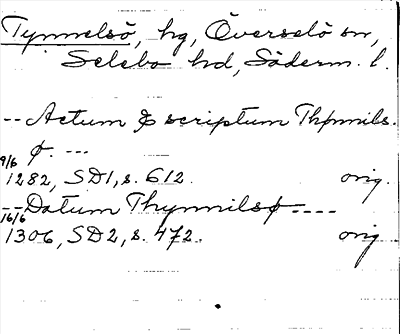 Tynnelsö, hg, Överselö sn,
Selebo hd, Söderm. l.
-- Actum & scriptum Thynnils.
ø. ---
9/6
1282, SD1, s. 612. orig.
-- Datum Thynnilsø ----
16/6
1306, SD2, s. 472. orig